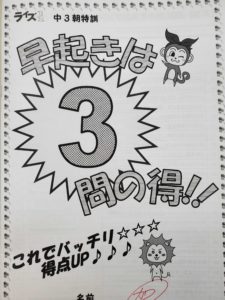 ライズ 中3朝特訓
早起きは
3
問の得!!
これでバッチリ☆☆☆
得点UP♪♪♪
名前